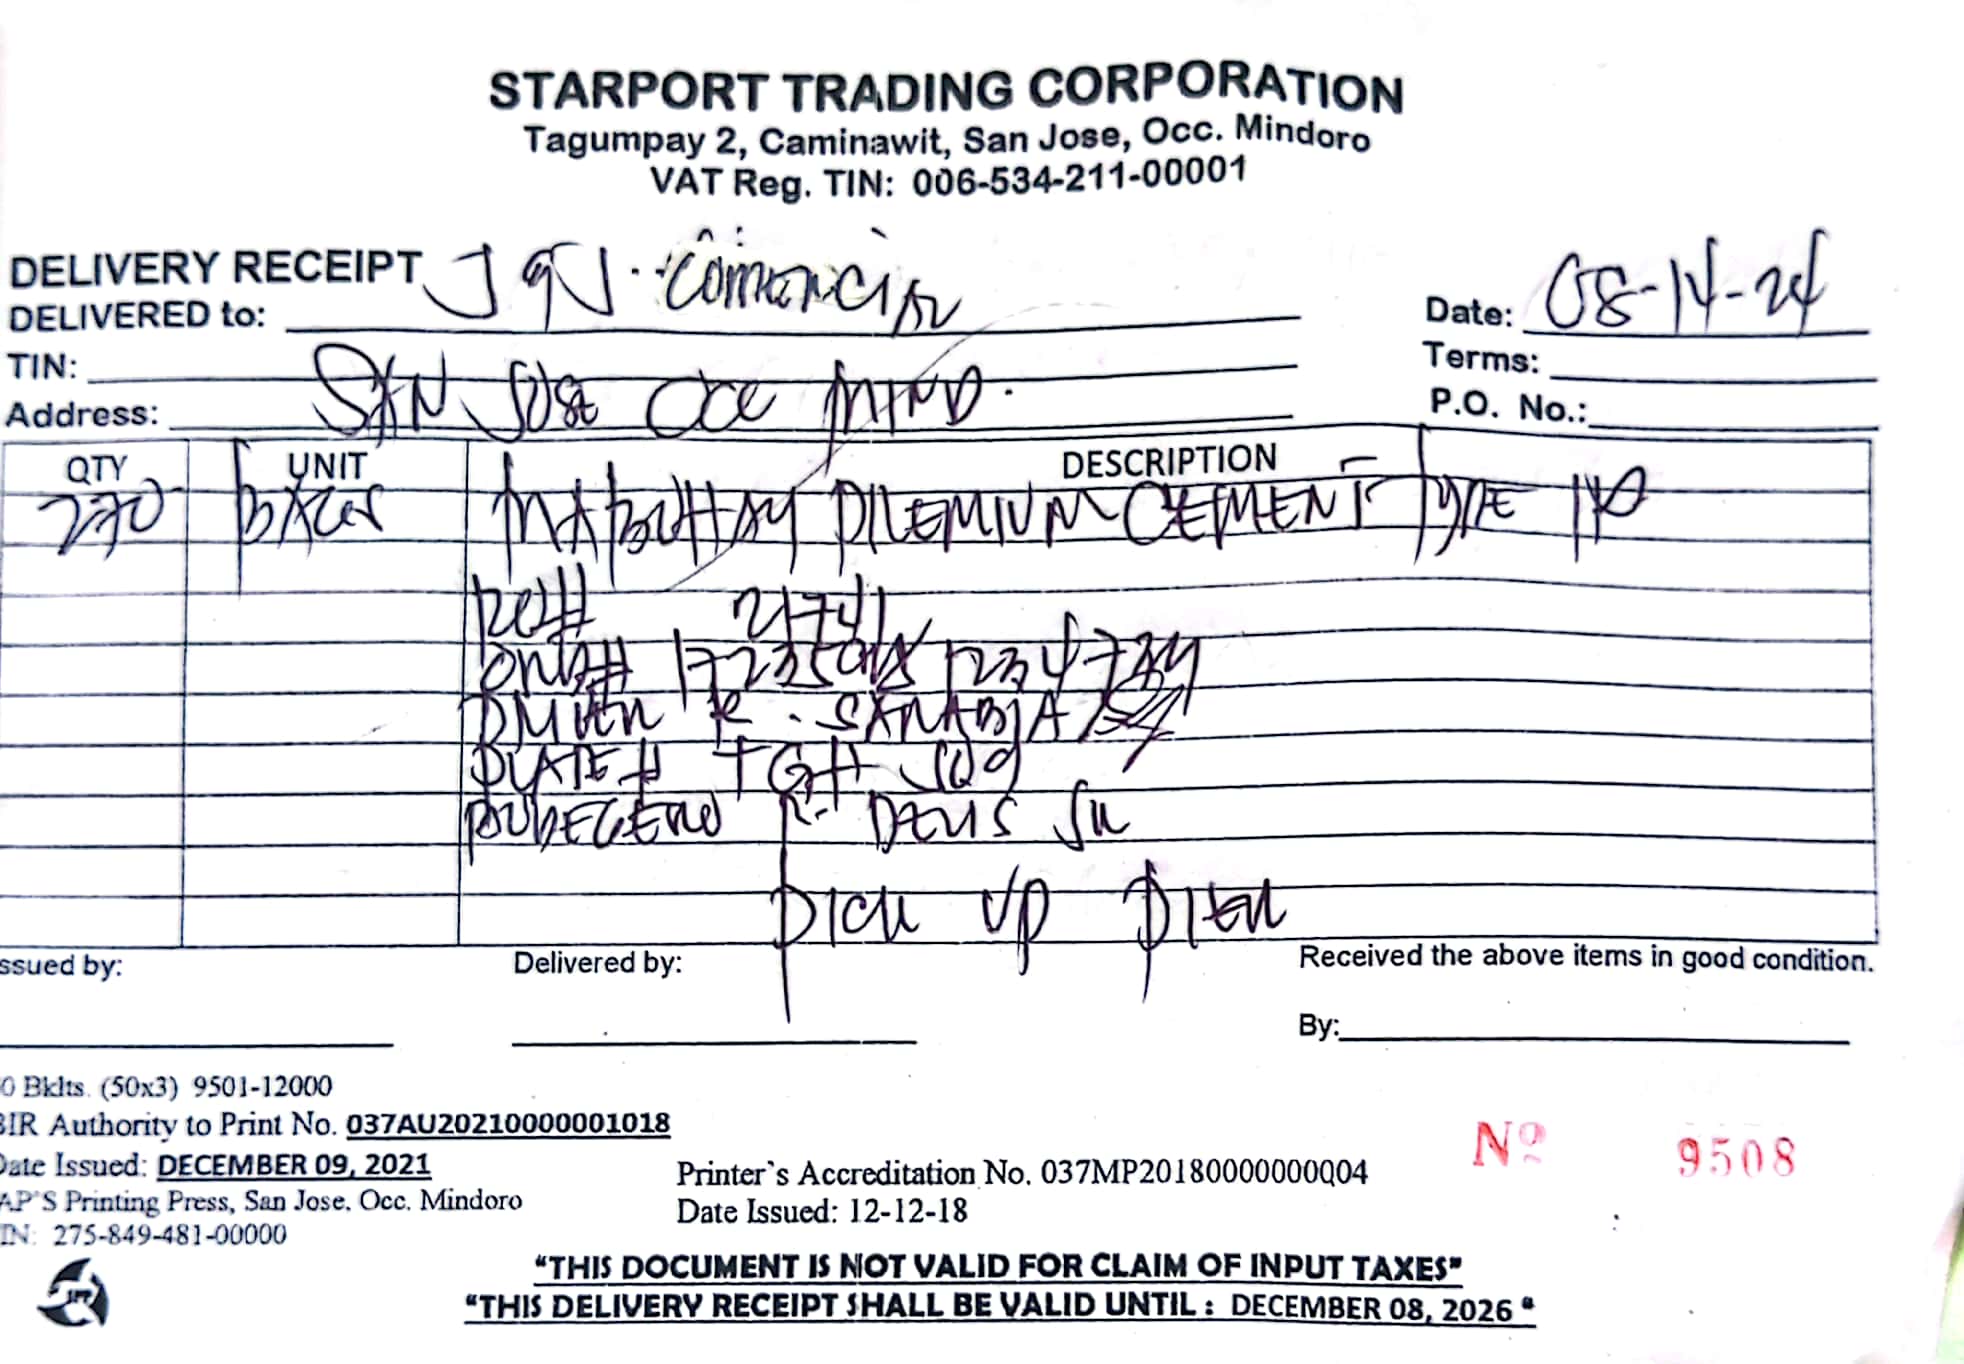 STARPORT TRADING CORPORATION
Tagumpay 2, Caminawit, San Jose, Occ. Mindoro
VAT Reg. TIN: 006-534-211-00001
DELIVERY RECEIPT
DELIVERED to: JGJ Commercial
Date: 08-14-24
TIN:
Terms:
Address: SAN JOSE OCC MIND.
P.O. No.:
QTY UNIT DESCRIPTION
270 MABUHAY PREMIUM CEMENT TYPE
21741
DRIVER R. SANABIA
PLATE # TGH
R. DEUS SR
PICK UP PIER
ssued by:
Delivered by:
Received the above items in good condition.
By:
0 Bklts. (50x3) 9501-12000
BIR Authority to Print No. 037AU20210000001018
Date Issued: DECEMBER 09, 2021
AP'S Printing Press, San Jose. Occ. Mindoro
IN: 275-849-481-00000
Printer's Accreditation No. 037MP20180000000Q04
Date Issued: 12-12-18
Nº 9508
"THIS DOCUMENT IS NOT VALID FOR CLAIM OF INPUT TAXES"
"THIS DELIVERY RECEIPT SHALL BE VALID UNTIL : DECEMBER 08, 2026 "